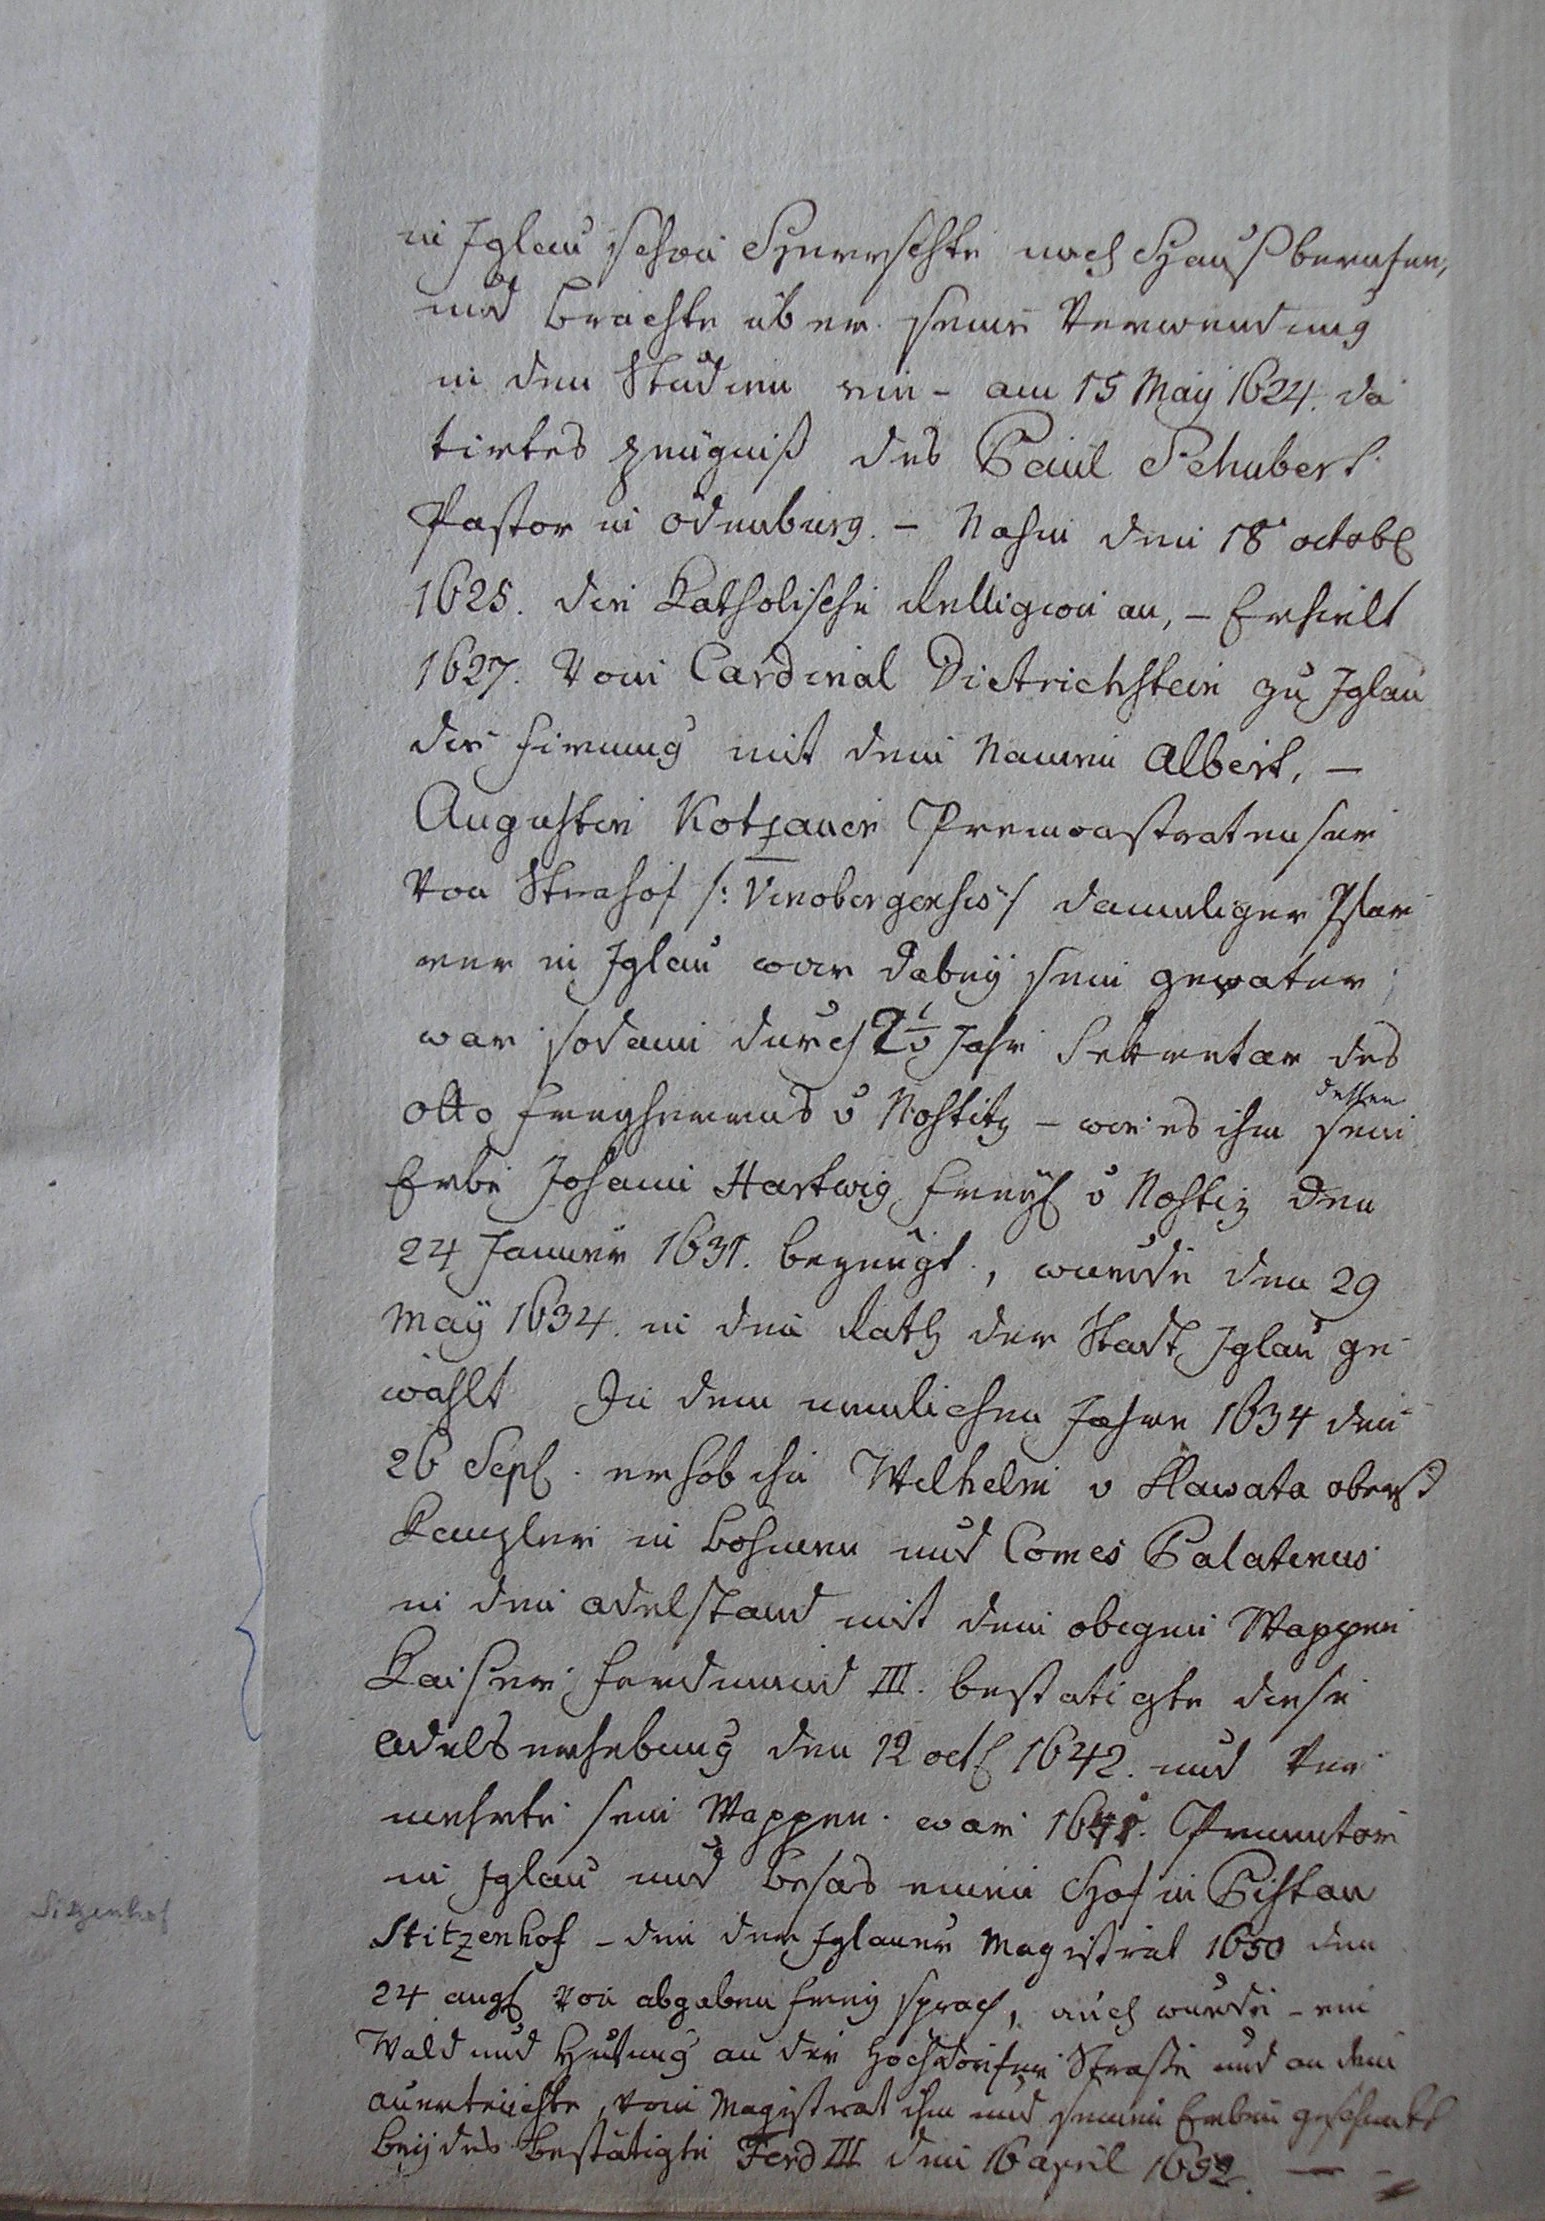 in Iglau schon Herrschte nach Hauß berufen,
und brachte über seine Verwendung
in den Studien ein - am 15 May 1624. da
tirtes zeugniß des Paul Schubert
Pastor in ödenburg. - Nahm den 18 octobr
1625. die Katholische Relligion an, - Erhielt
1627. Vom Cardinal Dietrichstein zu Iglau
die Firmung mit dem Namen Albert, -
Augustin Kotzauer Premonstratenser
Von Strahof /: Vinobergensis :/ damaliger Pfar
rer in Iglau war dabey sein gevater,
war sodann durch 2½ Jahr Sekretär des
Otto Freyherrns v Nostitz - wie es ihm sein
dessen
Erbe Johann Hartwig Freyh v Nostiz den
24 Januer 1631. bezeugt, wurde den 29
May 1634. in den Rath der Stadt Iglau ge-
wählt In dem nemlichen Jahre 1634 den
26 Sept. erhob ihn Wilhelm v Slawata oberst
Kanzler in Böhmen und Comes Palatinus
in den adelstand mit dem obigen Wappen
Kaiser Ferdinand III. bestatigte diese
adelserhebung den 12 oct 1642. und Ver
mehrte sein Wappen. war 1641. Primator
in Iglau und besas einen Hof in Pistau
Stitzenhof - den der Iglauer Magistrat 1650 den
24 aug Von abgaben frey sprach, auch wurde - ein
Wald und Hutung an der Hochdorfer Straße und an dem
vom Magistrat ihm und seinen Erben geschenkt
beydes bestätigte Ferd III den 16 april 1652. - -
Sitzenhof